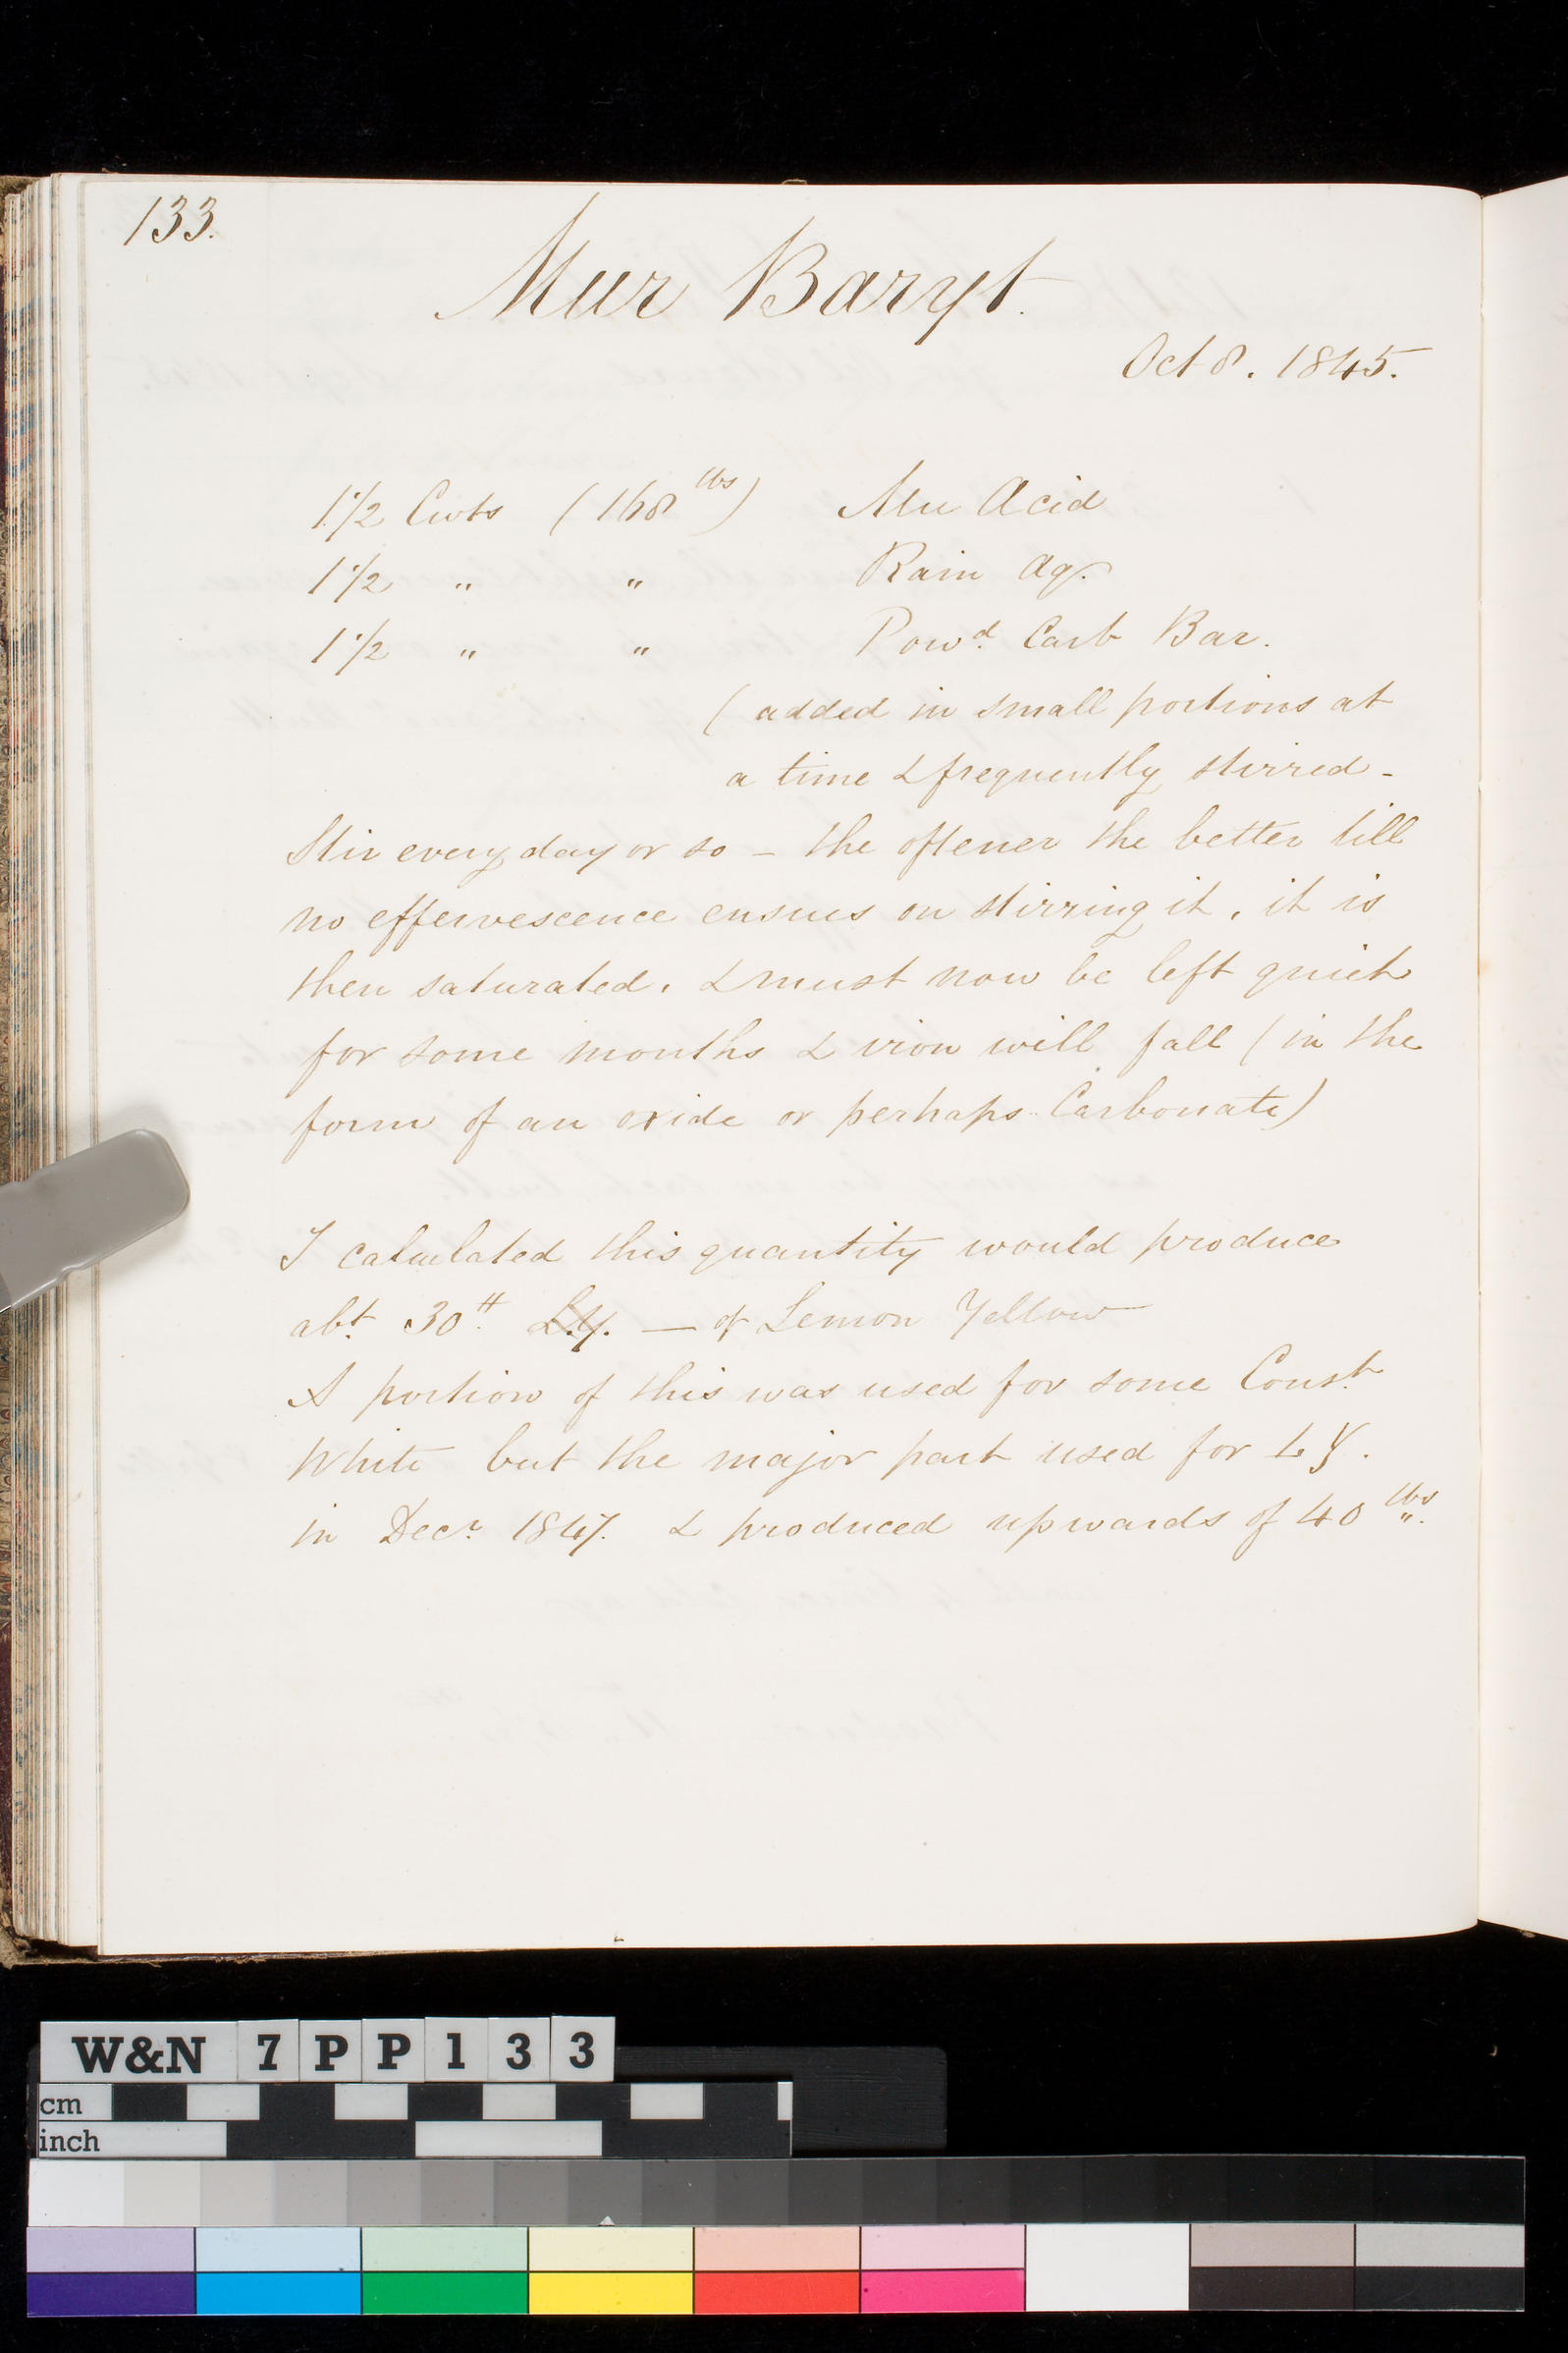 133.
Mur Baryt.
Oct 8. 1845.
1 1/2 Cwts (168 lbs) Mu Acid
1 1/2 " " Rain Aq.
1 1/2 " " Powd. Carb Bar.
(added in small portions at
a time & frequently stirred -
Stir every day or so - the oftener the better till
no effervescence ensues on stirring it, it is
then saturated. & must now be left quiet
for some months & iron will fall (in the
form of an oxide or perhaps Carbonate)
I calculated this quantity would produce
abt. 30 tt. L.Y. — of Lemon Yellow
A portion of this was used for some Const.
White but the major part used for L Y.
in Decr. 1847. & produced upwards of 40 lbs.
W&N 7PP133
cm
inch